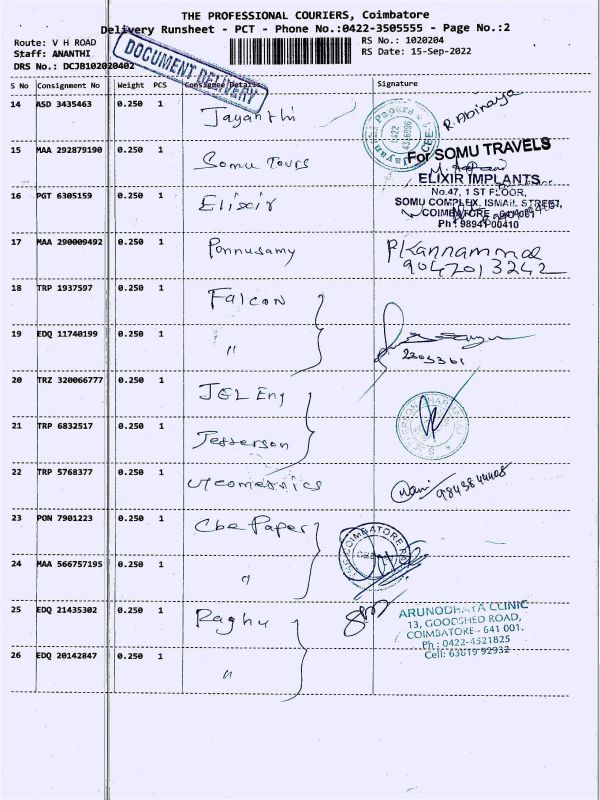 THE PROFESSIONAL COURIERS, Coimbatore
Delivery Runsheet - PCT - Phone No.:0422-3505555 - Page No.:2
Route: V H ROAD
Staff: ANANTHI
DRS No.: DCJB102020402
DOCUMENT DELIVERY
RS No.: 1020204
RS Date: 15-Sep-2022
S No Consignment No Weight PCS Consignee Details Signature
14 ASD 3435463 0.250 1 Jayanthi R. Abinaya
15 MAA 292879190 0.250 1 Somu Tours For SOMU TRAVELS
16 PGT 6305159 0.250 1 Elixir ELIXIR IMPLANTS
No.47, 1 ST FLOOR,
SOMU COMPLEX, ISMAIL STREET,
COIMBATORE
Ph : 98941 00410
17 MAA 290009492 0.250 1 Ponnusamy P Kannammal
9047013242
18 TRP 1937597 0.250 1 Falcon
19 EDQ 11740199 0.250 1 "
20 TRZ 320066777 0.250 1 JGL Eng
21 TRP 6832517 0.250 1 Jefferson
22 TRP 5768377 0.250 1 Mani 9843844408
23 PON 7901223 0.250 1 Cbe Paper
COIMBATORE
24 MAA 566757195 0.250 1 "
25 EDQ 21435302 0.250 1 Raghu ARUNODHAYA CLINIC
13, GOODSHED ROAD,
COIMBATORE - 641 001.
Ph : 0422-4521825
Cell: 63819 92932
26 EDQ 20142847 0.250 1 "